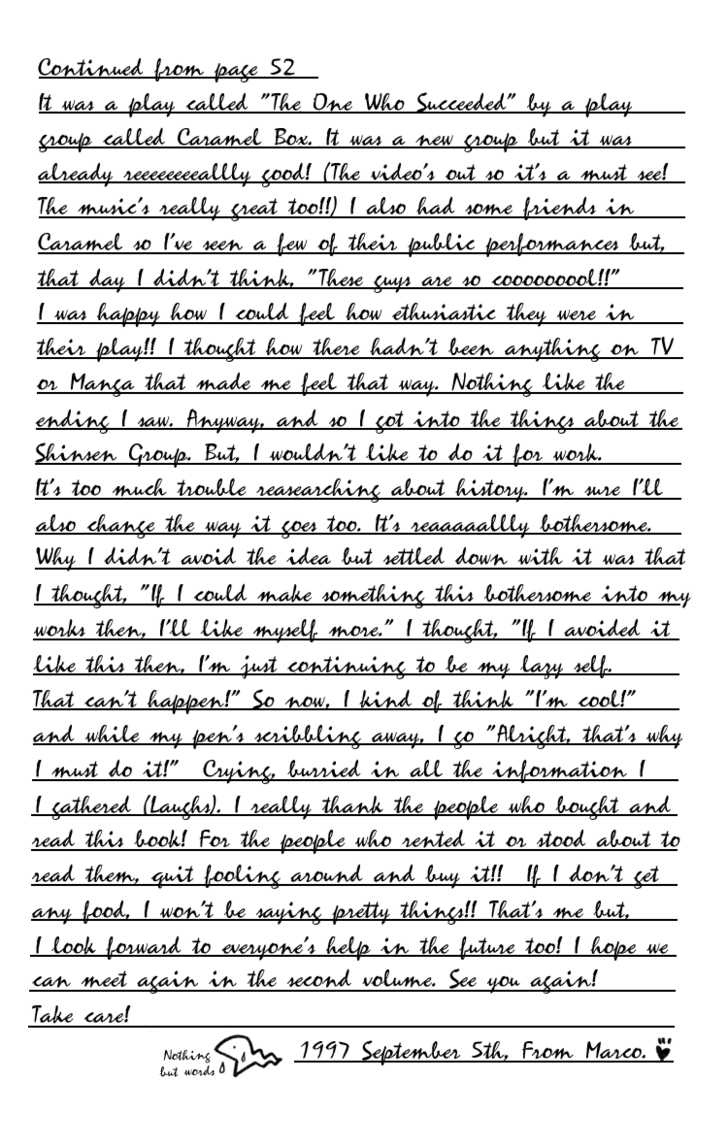 Continued from page 52
It was a play called "The One Who Succeeded" by a play
group called Caramel Box. It was a new group but it was
already reeeeeeeallly good! (The video's out so it's a must see!
The music's really great too!!) I also had some friends in
Caramel so I've seen a few of their public performances but,
that day I didn't think, "These guys are so cooooooool!!"
I was happy how I could feel how ethusiastic they were in
their play!! I thought how there hadn't been anything on TV
or Manga that made me feel that way. Nothing like the
ending I saw. Anyway, and so I got into the things about the
Shinsen Group. But, I wouldn't like to do it for work.
It's too much trouble reasearching about history. I'm sure I'll
also change the way it goes too. It's reaaaaallly bothersome.
Why I didn't avoid the idea but settled down with it was that
I thought, "If I could make something this bothersome into my
works then, I'll like myself more." I thought, "If I avoided it
like this then, I'm just continuing to be my lazy self.
That can't happen!" So now, I kind of think "I'm cool!"
and while my pen's scribbling away, I go "Alright, that's why
I must do it!" Crying, burried in all the information I
I gathered (Laughs). I really thank the people who bought and
read this book! For the people who rented it or stood about to
read them, quit fooling around and buy it!! If I don't get
any food, I won't be saying pretty things!! That's me but,
I look forward to everyone's help in the future too! I hope we
can meet again in the second volume. See you again!
Take care!
Nothing
but words
1997 September 5th, From Marco.